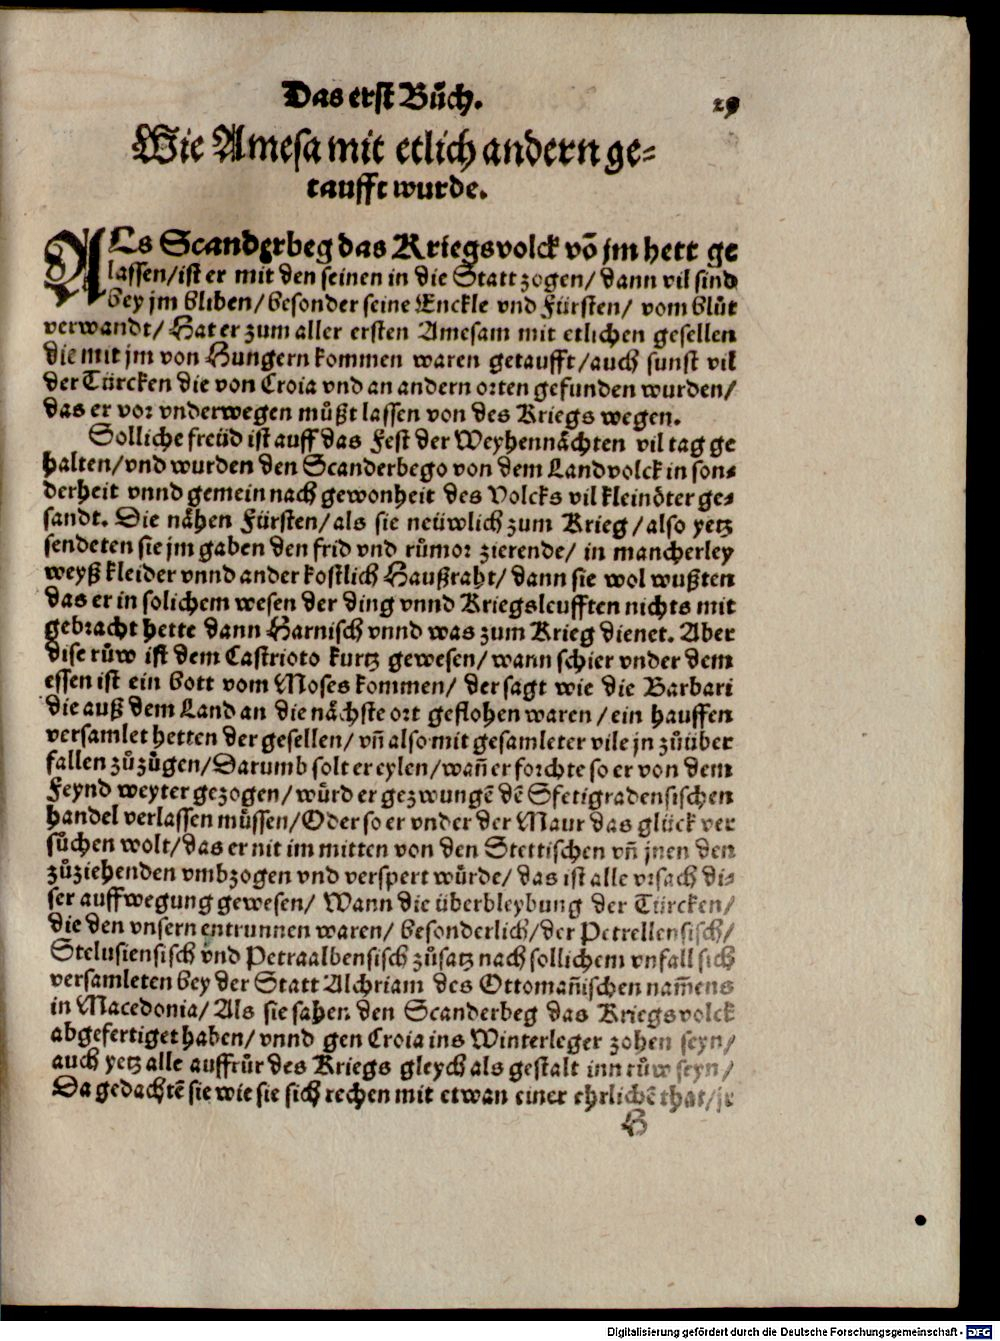 Das erst Bůch. 29
Wie Amesa mit etlich andern ge⸗
taufft wurde.
ALs Scanderbeg das Kriegsvolck võ jm hett ge
lassen/ ist er mit den seinen in die Statt zogen/ dann vil sind
bey jm bliben/ besonder seine Enckle vnd Fürsten/ vom blůt
verwandt/ Hat er zum aller ersten Amesam mit etlichen gesellen
die mit jm von Hungern kommen waren getaufft/ auch sunst vil
der Türcken die von Croia vnd an andern orten gefunden wurden/
das er vor vnderwegen müßt lassen von des Kriegs wegen.
Solliche freüd ist auff das Fest der Weyhennächten vil tag ge
halten/ vnd wurden den Scanderbego von dem Landvolck in son⸗
derheit vnnd gemein nach gewonheit des Volcks vil kleinöter ge⸗
sandt. Die nähen Fürsten/ als sie neüwlich zum Krieg/ also yetz
sendeten sie jm gaben den frid vnd růmor zierende/ in mancherley
weyß kleider vnnd ander kostlich Haußraht/ dann sie wol wußten
das er in solichem wesen der ding vnnd Kriegsleufften nichts mit
gebracht hette dann Harnisch vnnd was zum Krieg dienet. Aber
dise růw ist dem Castrioto kurtz gewesen/ wann schier vnder dem
essen ist ein bott vom Moses kommen/ der sagt wie die Barbari
die auß dem Land an die nächste ort geflohen waren/ ein hauffen
versamlet hetten der gesellen/ vñ also mit gesamleter vile jn zůüber
fallen zůzůgen/ Darumb solt er eylen/ wañ er forchte so er von dem
Feynd weyter gezogen/ würd er gezwungẽ dẽ Sfetigradensischen
handel verlassen müssen/ Oder so er vnder der Maur das glück ver
sůchen wolt/ das er nit im mitten von den Stettischen vñ jnen den
zůziehenden vmbzogen vnd verspert würde/ das ist alle vrsach di⸗
ser auffwegung gewesen/ Wann die überbleybung der Türcken/
die den vnsern entrunnen waren/ besonderlich/ der Petrellensisch/
Stelusiensisch vnd Petraalbensisch zůsatz nach sollichem vnfall sich
versamleten bey der Statt Alchriam des Ottomañischen nam̃ens
in Macedonia/ Als sie sahen den Scanderbeg das Kriegsvolck
abgefertiget haben/ vnnd gen Croia ins Winterleger zohen seyn/
auch yetz alle auffrůr des Kriegs gleych als gestalt inn růw seyn/
Da gedachtẽ sie wie sie sich rechen mit etwan einer ehrlichẽ that/ je
H
Digitalisierung gefördert durch die Deutsche Forschungsgemeinschaft - DFG